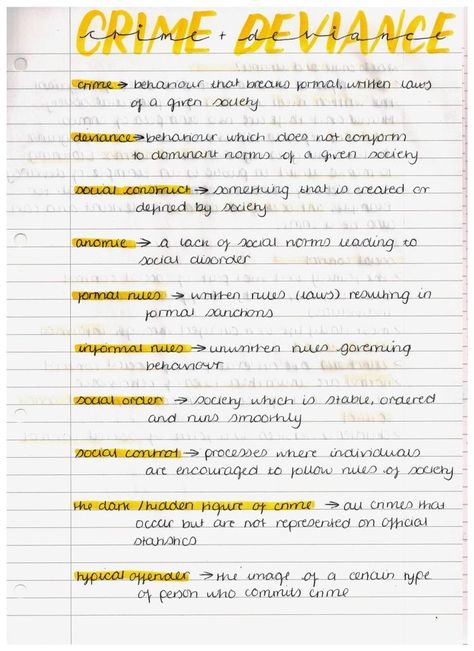 CRIME + DEVIANCE
crime + deviance
crime → behaviour that breaks formal, written laws
of a given society
deviance → behaviour which does not conform
to dominant norms of a given society
social construct → something that is created or
defined by society
anomie → a lack of social norms leading to
social disorder
formal rules → written rules (laws) resulting in
formal sanctions
informal rules → unwritten rules governing
behaviour
social order → society which is stable, ordered
and runs smoothly
social control → processes where individuals
are encouraged to follow rules of society
the dark/hidden figure of crime → all crimes that
occur but are not represented on official
statistics
typical offender → the image of a certain type
of person who commits crime